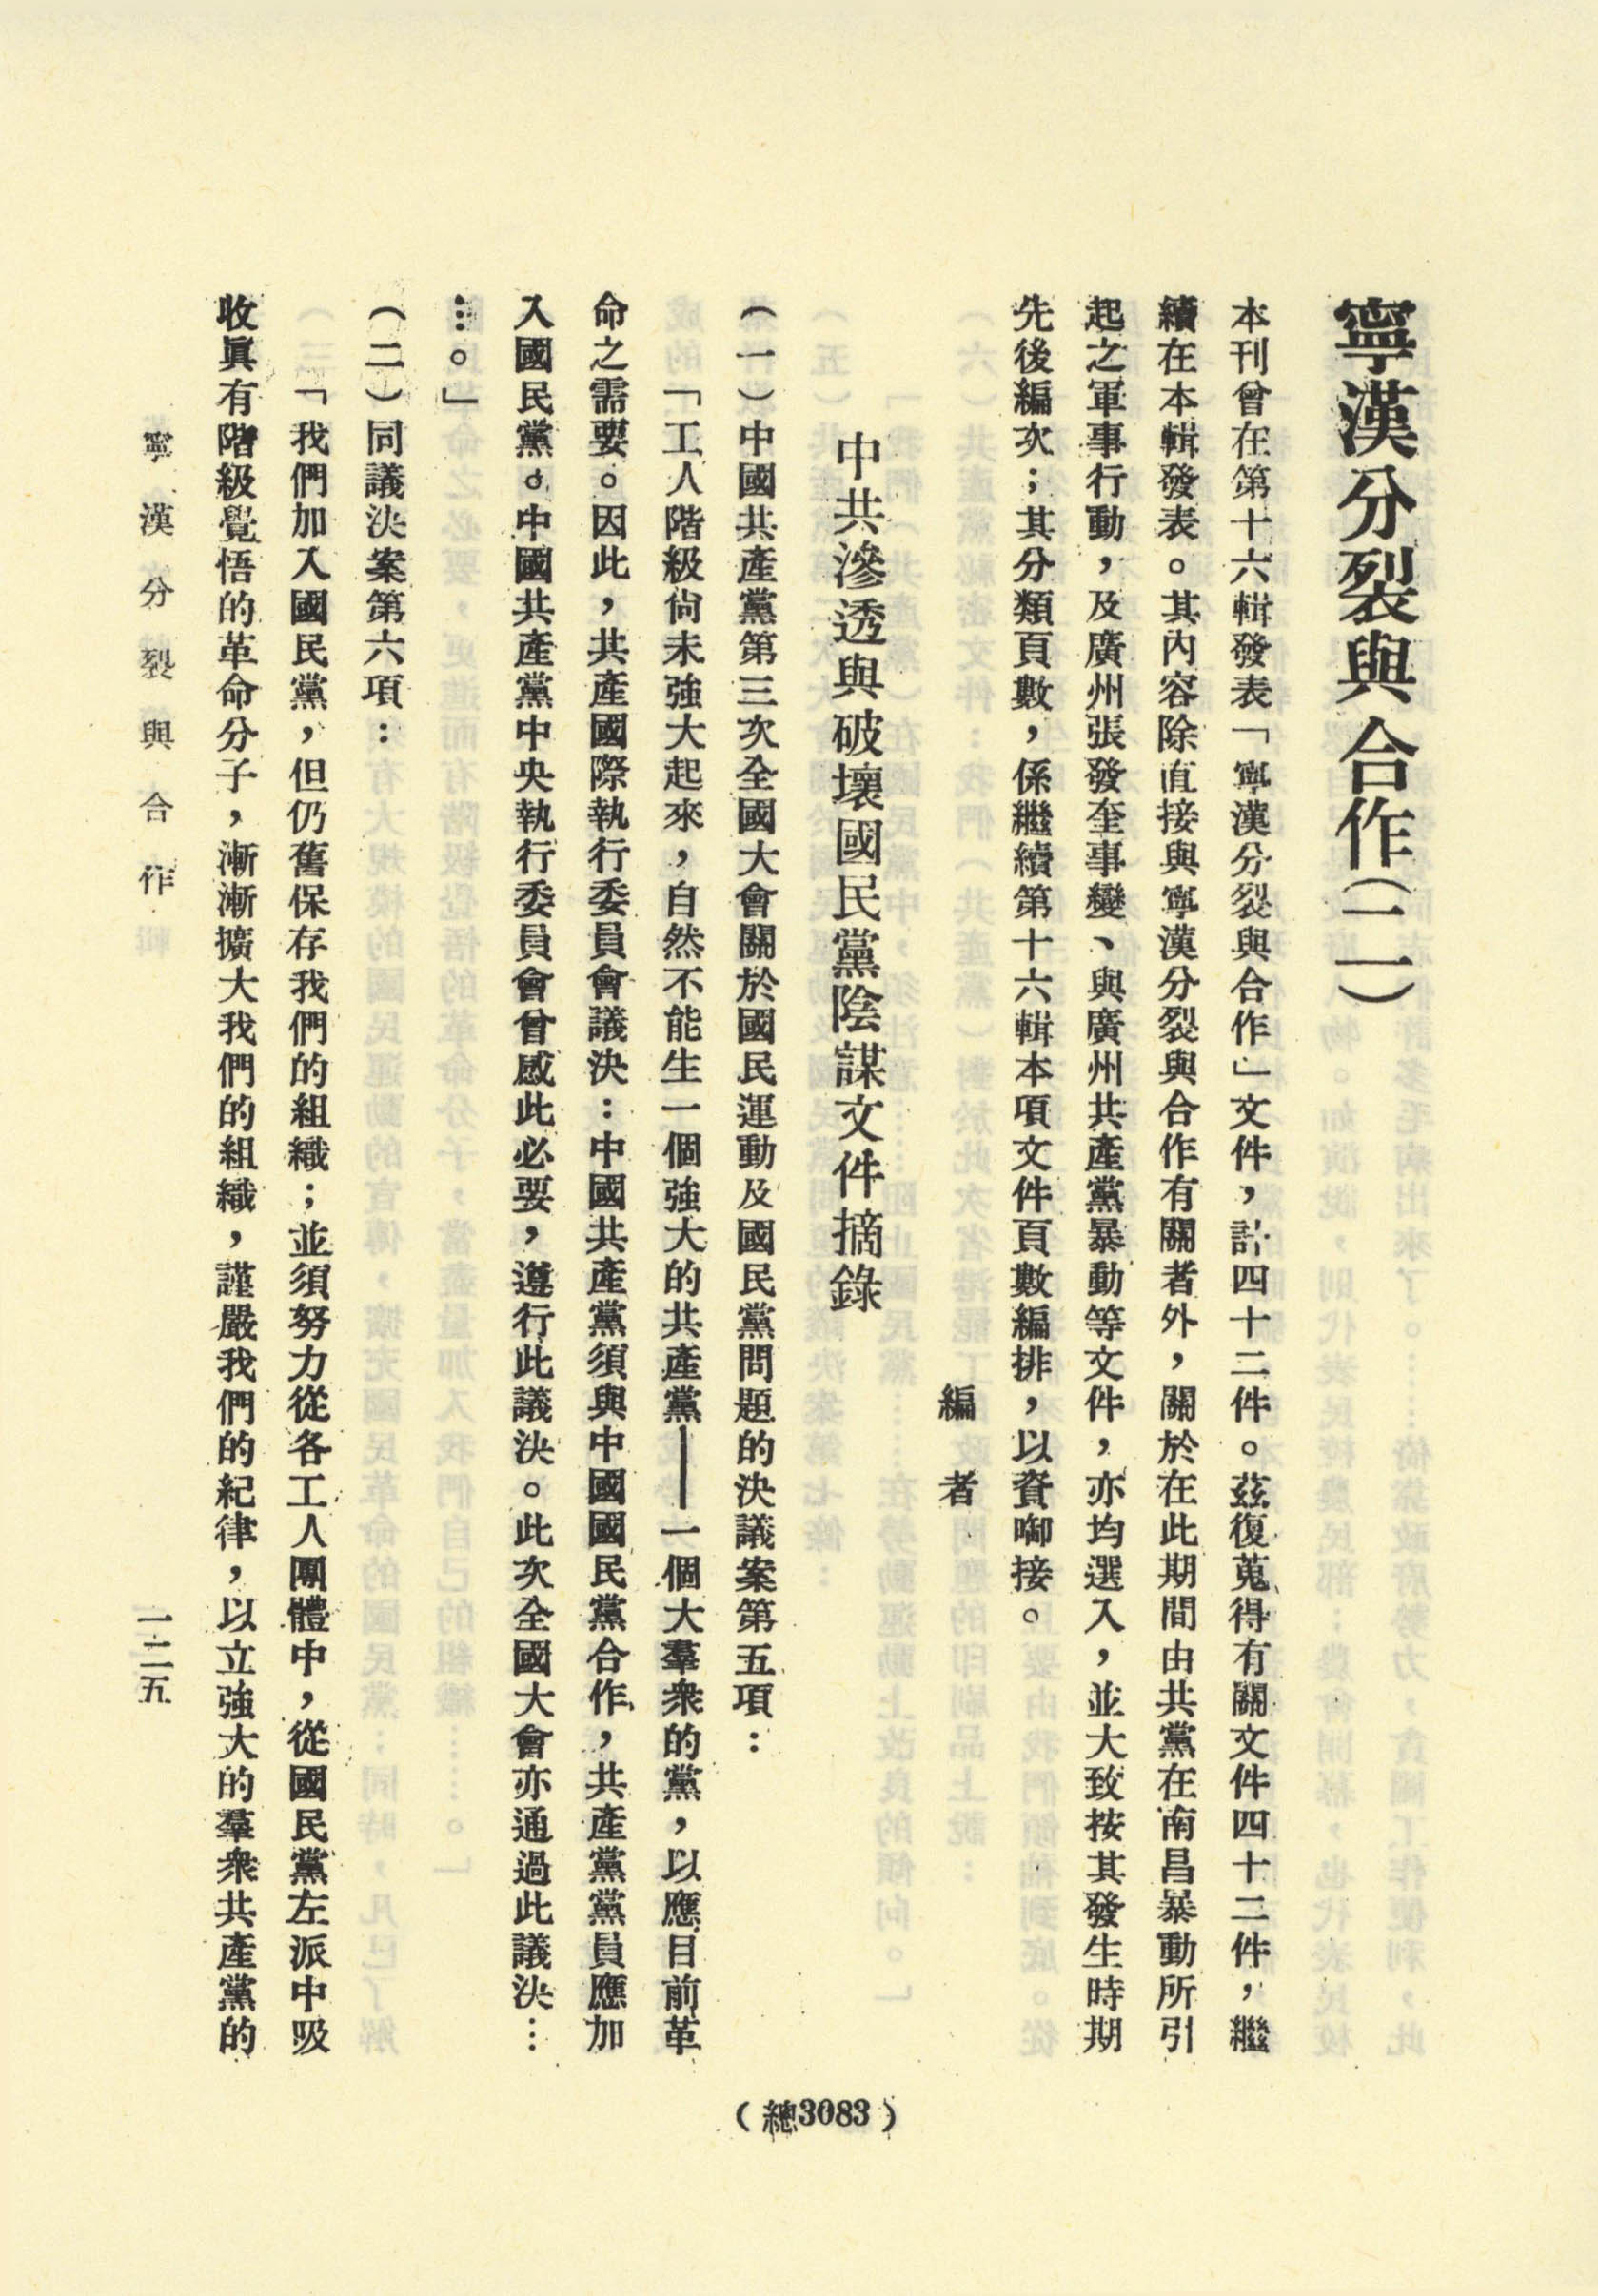 寧漢分裂與合作(二)
本刊曾在第十六輯發表「寧漢分裂與合作」文件，計四十二件。茲復蒐得有關文件四十二件，繼
續在本輯發表。其內容除直接與寧漢分裂與合作有關者外，關於在此期間由共黨在南昌暴動所引
起之軍事行動，及廣州張發奎事變、與廣州共產黨暴動等文件，亦均選入，並大致按其發生時期
先後編次；其分類頁數，係繼續第十六輯本項文件頁數編排，以資啣接。
編者
中共滲透與破壞國民黨陰謀文件摘錄
(一)中國共產黨第三次全國大會關於國民運動及國民黨問題的決議案第五項：
「工人階級尙未強大起來，自然不能生一個強大的共產黨——一個大羣衆的黨，以應目前革
命之需要。因此，共產國際執行委員會議決：中國共產黨須與中國國民黨合作，共產黨黨員應加
入國民黨。中國共產黨中央執行委員會曾感此必要，遵行此議決。此次全國大會亦通過此議決…
…。」
(二)同議決案第六項：
「我們加入國民黨，但仍舊保存我們的組織；並須努力從各工人團體中，從國民黨左派中吸
收眞有階級覺悟的革命分子，漸漸擴大我們的組織，謹嚴我們的紀律，以立強大的羣衆共產黨的
寧漢分裂與合作
一二五
(總3083)